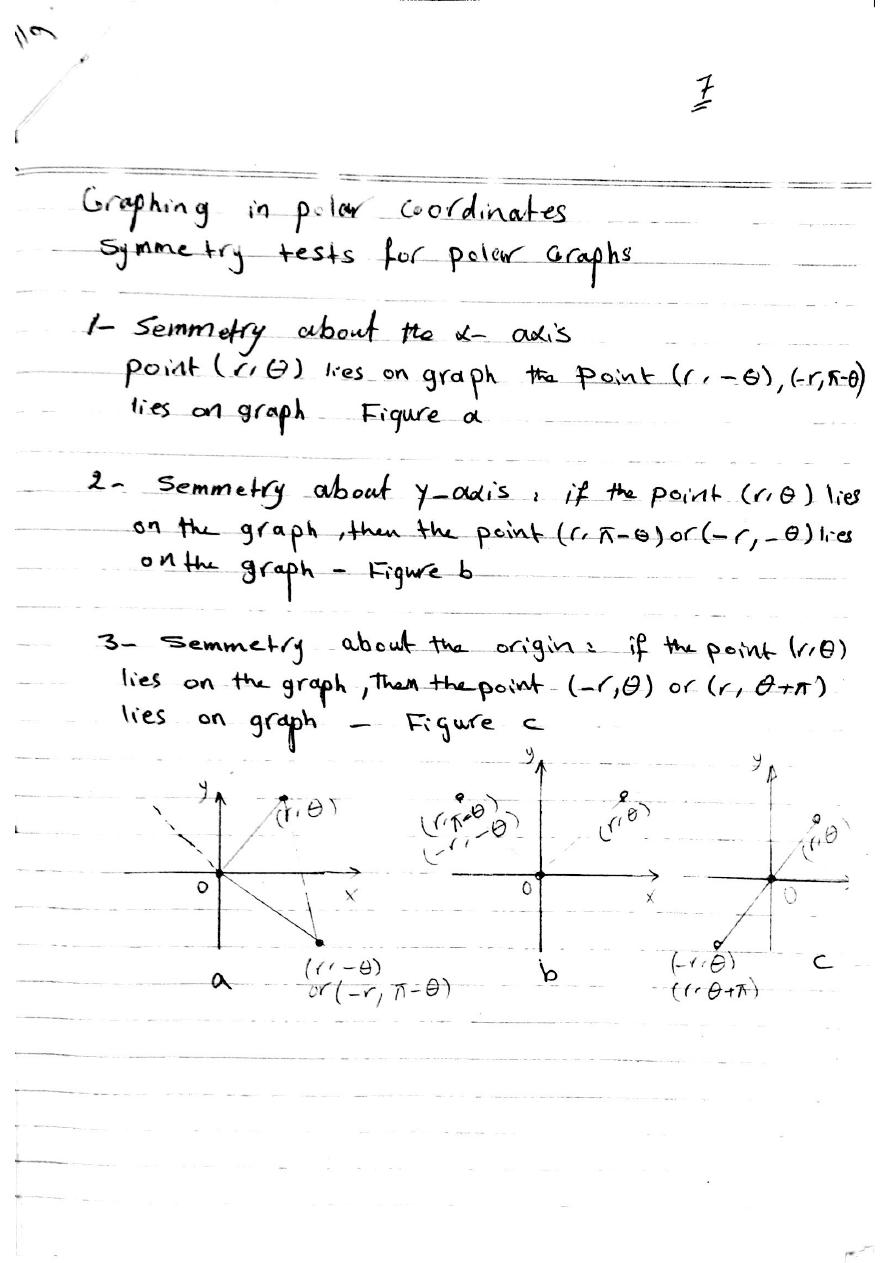 7
Graphing in polar coordinates
Symmetry tests for polar Graphs
1- Semmetry about the x- axis
point (r, θ) lies on graph the point (r, -θ), (-r, π-θ)
lies on graph Figure a
2- Semmetry about y-axis : if the point (r, θ) lies
on the graph, then the point (r, π-θ) or (-r, -θ) lies
on the graph - Figure b
3- Semmetry about the origin : if the point (r, θ)
lies on the graph, then the point (-r, θ) or (r, θ+π)
lies on graph - Figure c
y
(r, θ)
O
x
(r, -θ)
or (-r, π-θ)
a
y
(r, π-θ)
(-r, -θ)
(r, θ)
O
x
b
y
(r, θ)
O
(-r, θ)
(r, θ+π)
c